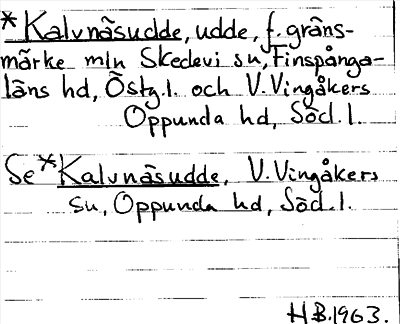 *Kalvnäsudde, udde, f. gräns-
märke mln Skedevi sn, Finspånga-
läns hd, Östg. l. och V. Vingåkers
Oppunda hd, Söd. l.
Se *Kalvnäsudde, V. Vingåkers
sn, Oppunda hd, Söd. l.
HB. 1963.